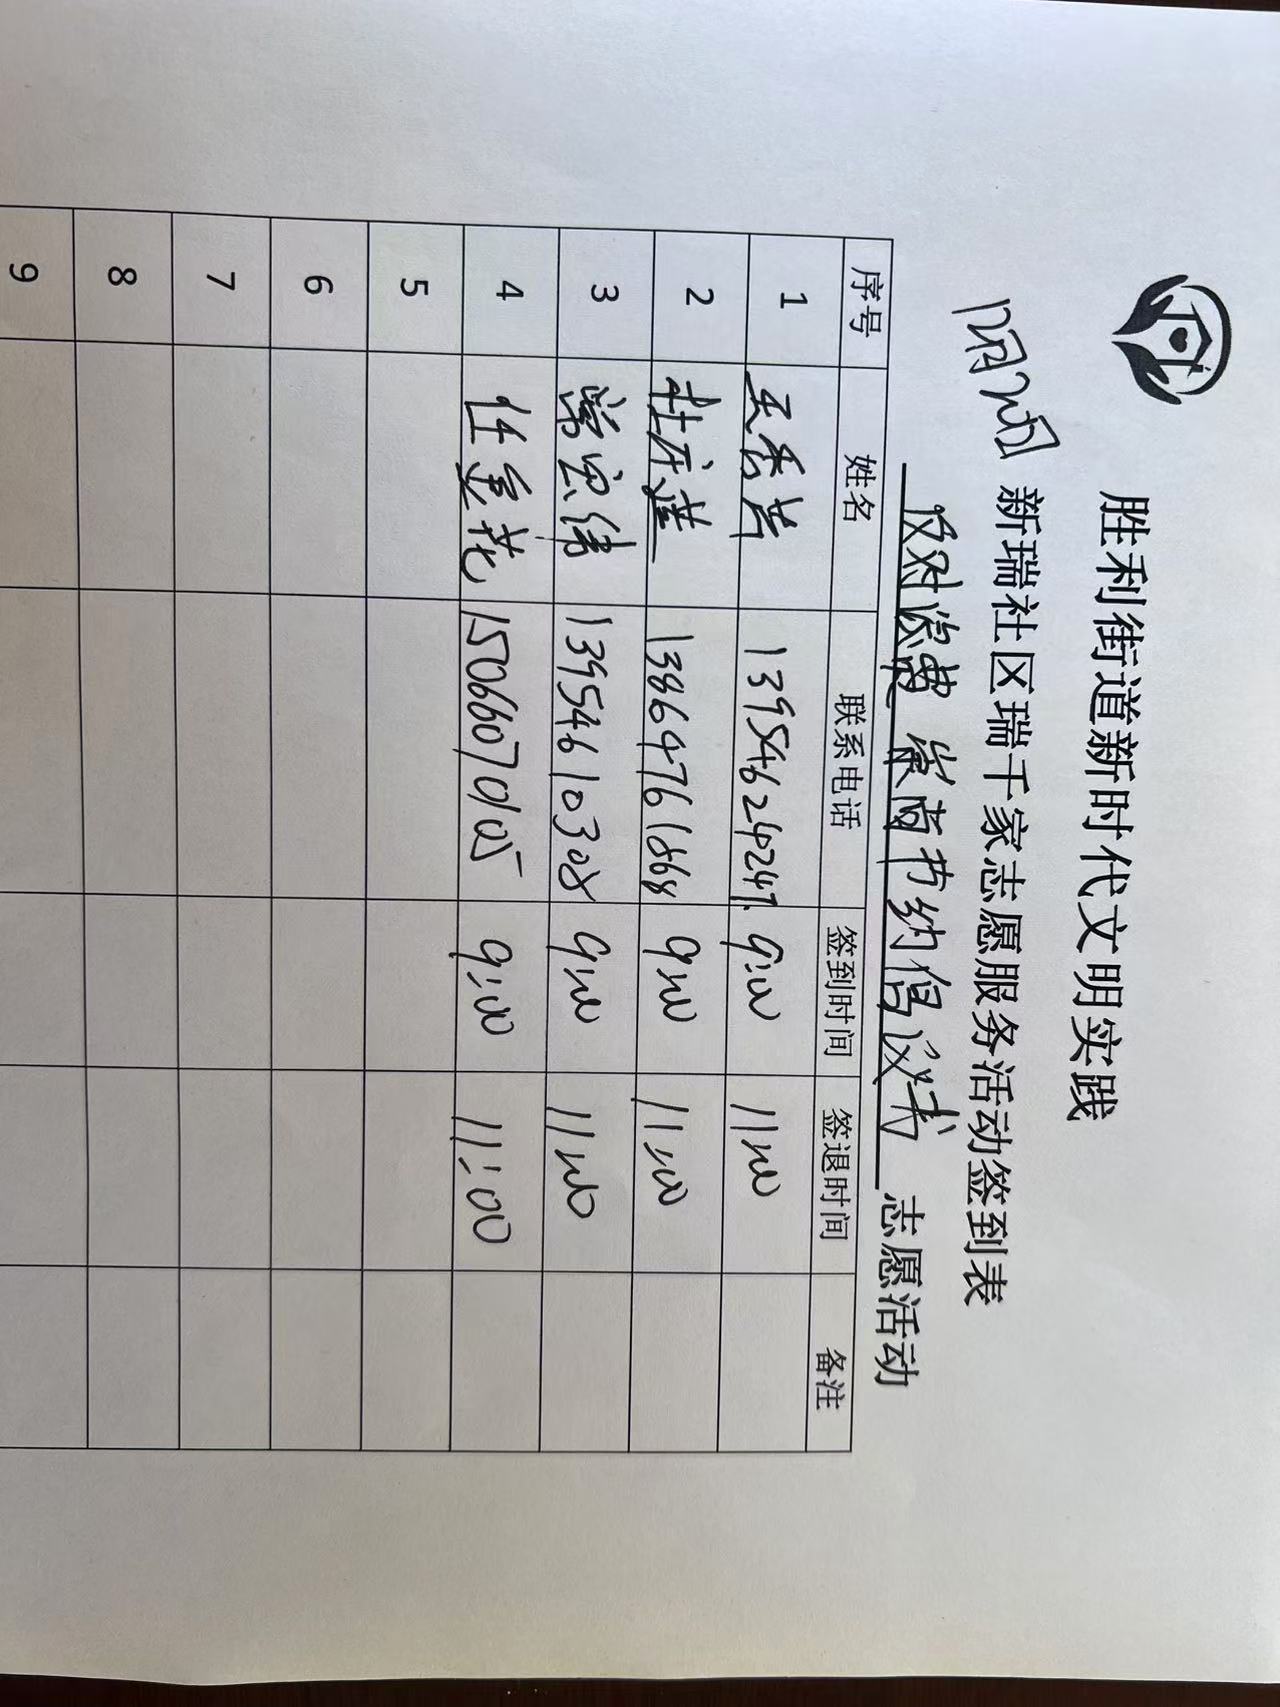 胜利街道新时代文明实践
新瑞社区瑞千家志愿服务活动签到表
反对浪费 崇尚节约倡议书 志愿活动
序号 姓名 联系电话 签到时间 签退时间 备注
1 王秀芳 13954624247 9:00 11:00
2 杜庆莲 13864761668 9:00 11:00
3 常宏伟 13954610308 9:00 11:00
4 任美花 15066070105 9:00 11:00
5
6
7
8
9